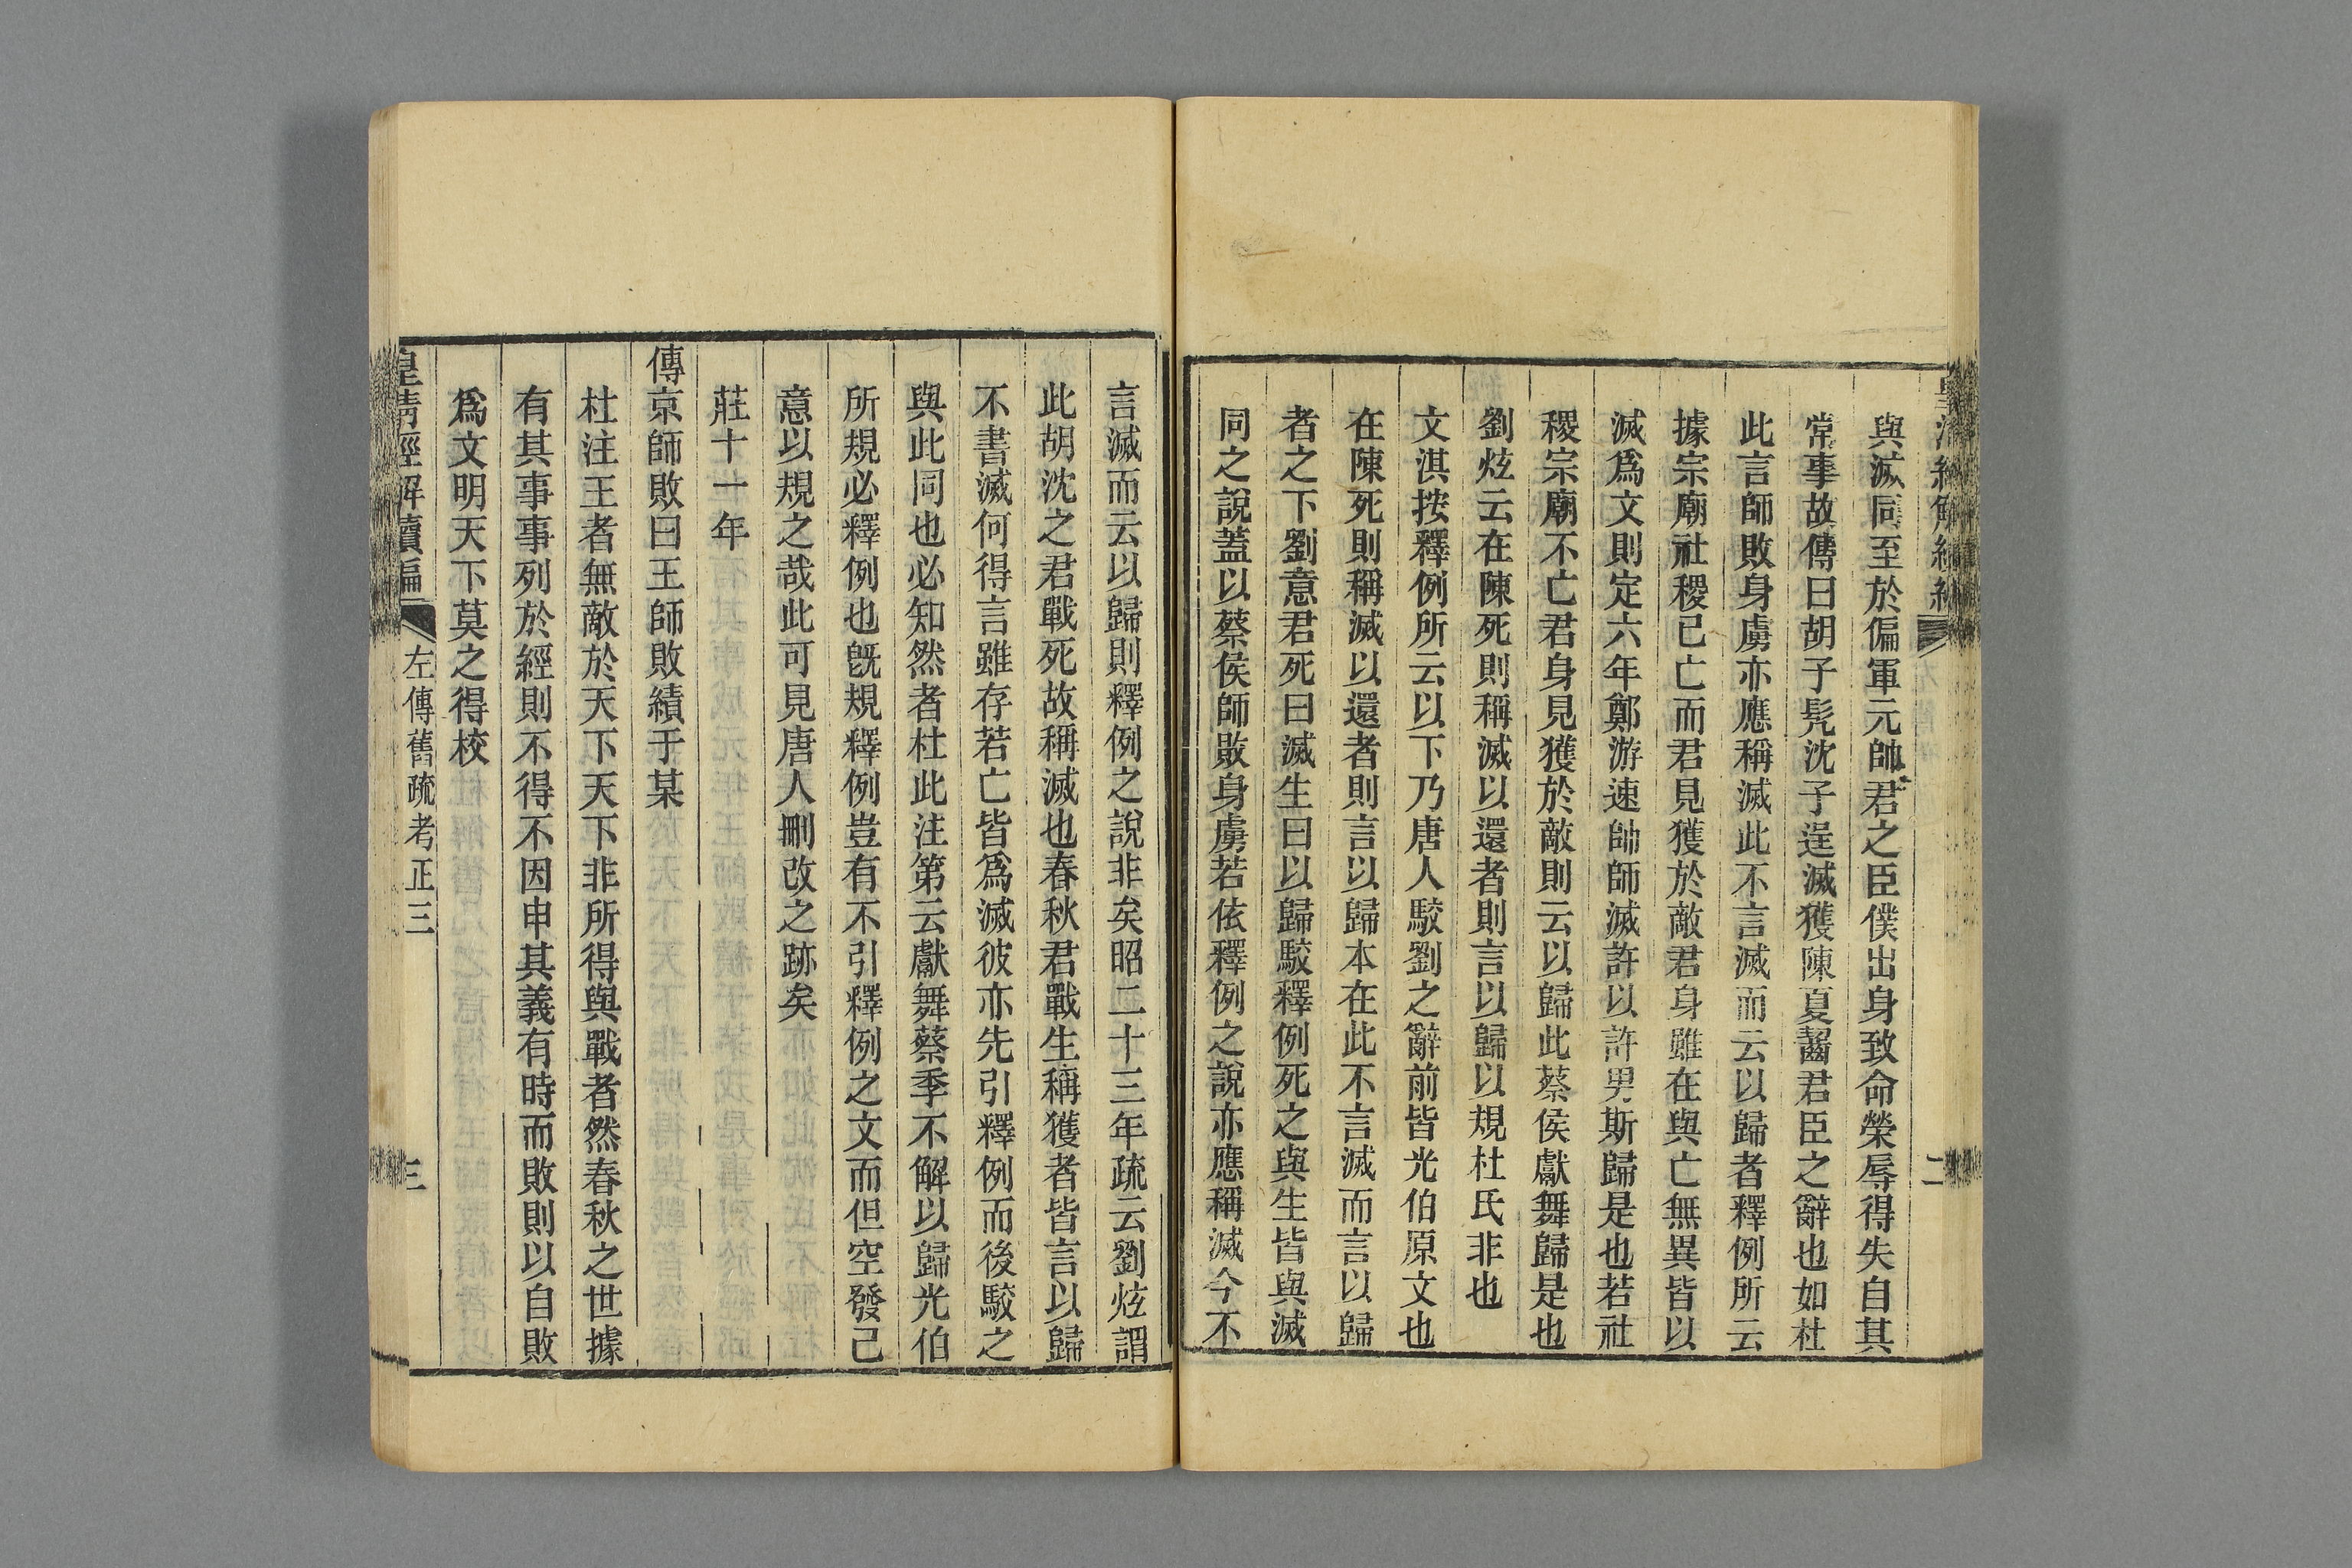 與滅同至於偏軍元帥君之臣僕出身致命榮辱得失自其
常事故傳曰胡子髠沈子逞滅獲陳夏齧君臣之辭也如杜
此言師敗身虜亦應稱滅此不言滅而云以歸者釋例所云
據宗廟社稷已亡而君見獲於敵君身雖在與亡無異皆以
滅爲文則定六年鄭游速帥師滅許以許男斯歸是也若社
稷宗廟不亡君身見獲於敵則云以歸此蔡侯獻舞歸是也
劉炫云在陳死則稱滅以還者則言以歸以規杜氏非也
文淇按釋例所云以下乃唐人駮劉之辭前皆光伯原文也
在陳死則稱滅以還者則言以歸本在此不言滅而言以歸
者之下劉意君死曰滅生曰以歸駮釋例死之與生皆與滅
同之說蓋以蔡侯師敗身虜若依釋例之說亦應稱滅今不
二
言滅而云以歸則釋例之說非矣昭二十三年疏云劉炫謂
此胡沈之君戰死故稱滅也春秋君戰生稱獲者皆言以歸
不書滅何得言雖存若亡皆爲滅彼亦先引釋例而後駮之
與此同也必知然者杜此注第云獻舞蔡季不解以歸光伯
所規必釋例也旣規釋例豈有不引釋例之文而但空發己
意以規之哉此可見唐人刪改之跡矣
莊十一年
傳京師敗曰王師敗績于某
杜注王者無敵於天下天下非所得與戰者然春秋之世據
有其事事列於經則不得不因申其義有時而敗則以自敗
爲文明天下莫之得校
皇清經解續編
左傳舊疏考正三
三